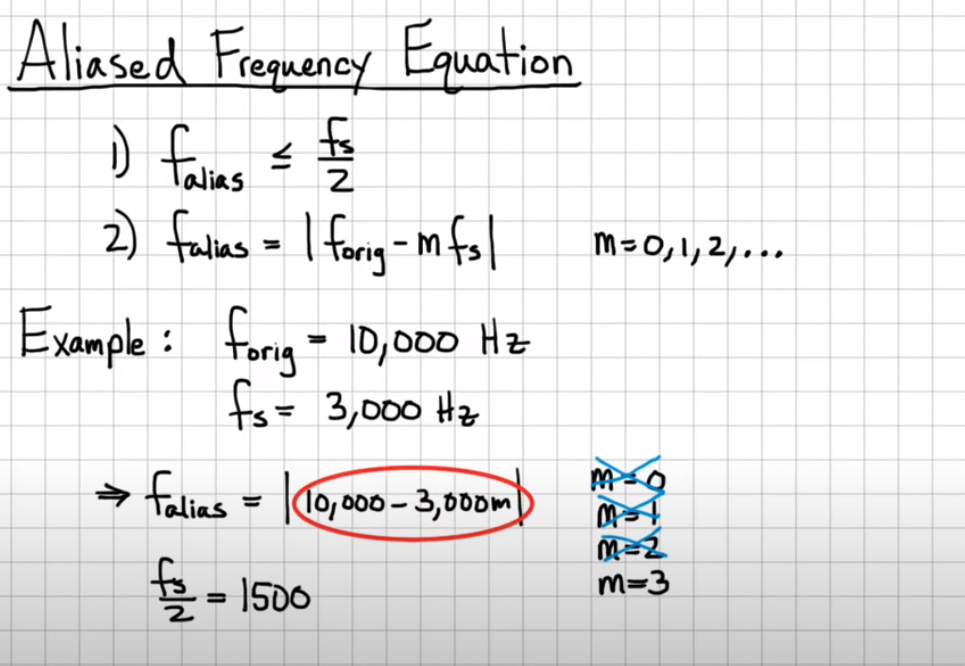 Aliased Frequency Equation
1) f_alias ≤ f_s/2
2) f_alias = |f_orig - m f_s|    m=0,1,2,...
Example: f_orig = 10,000 Hz
f_s = 3,000 Hz
⇒ f_alias = |10,000 - 3,000m|    m=0
m=1
m=2
f_s/2 = 1500    m=3